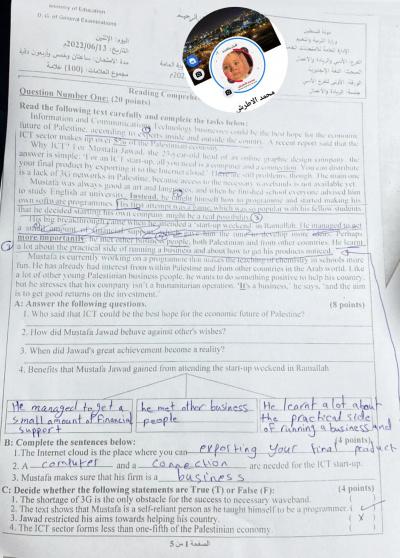 Ministry of Education
D. G. of General Examinations
دولة فلسطين
وزارة التربية والتعليم
اليوم: الإثنين
التاريخ: 2022/06/13م
مدة الامتحان: ساعتان وخمس وأربعون دقيقة
مجموع العلامات: (100) علامة
محمد الاطرش
Question Number One: (20 points)
Reading Comprehe
Read the following text carefully and complete the tasks below:
Information and Communications Technology businesses could be the best hope for the economic
future of Palestine, according to experts inside and outside the country. A recent report said that the
ICT sector makes up over 5% of the Palestinian economy.
Why ICT? For Mustafa Jawad, the 23-year-old head of an online graphic design company, the
answer is simple. 'For an ICT start-up, all you need is a computer and a connection. You can distribute
your final product by exporting it to the Internet cloud.' There are still problems, though. The main one
is a lack of 3G networks in Palestine, because access to the necessary wavebands is not yet available.
Mustafa was always good at art and languages, and when he finished school everyone advised him
to study English at university. Instead, he taught himself how to programme and started making his
own software programmes. His first attempt was a game, which was so popular with his fellow students
that he decided starting his own company might be a real possibility.
His big breakthrough came when he attended a 'start-up weekend' in Ramallah. He managed to get
a small amount of financial support, which gave him the time to develop more ideas. Perhaps
more importantly, he met other business people, both Palestinian and from other countries. He learnt
a lot about the practical side of running a business and about how to get his products noticed.
Mustafa is currently working on a programme that makes the teaching of chemistry in schools more
fun. He has already had interest from within Palestine and from other countries in the Arab world. Like
a lot of other young Palestinian business people, he wants to do something positive to help his country,
but he stresses that his company isn't a humanitarian operation. 'It's a business,' he says, 'and the aim
is to get good returns on the investment.'
A: Answer the following questions. (8 points)
1. Who said that ICT could be the best hope for the economic future of Palestine?
2. How did Mustafa Jawad behave against other's wishes?
3. When did Jawad's great achievement become a reality?
4. Benefits that Mustafa Jawad gained from attending the start-up weekend in Ramallah
He managed to get a small amount of financial support
he met other business people
He learnt a lot about the practical side of running a business and
B: Complete the sentences below: (4 points)
1.The Internet cloud is the place where you can exporting your final product
2. A computer and a connection are needed for the ICT start-up.
3. Mustafa makes sure that his firm is a business
C: Decide whether the following statements are True (T) or False (F): (4 points)
1. The shortage of 3G is the only obstacle for the success to necessary waveband. ( )
2. The text shows that Mustafa is a self-reliant person as he taught himself to be a programmer. ( ✓
3. Jawad restricted his aims towards helping his country. ( X )
4. The ICT sector forms less than one-fifth of the Palestinian economy. ( )
الصفحة 1 من 5